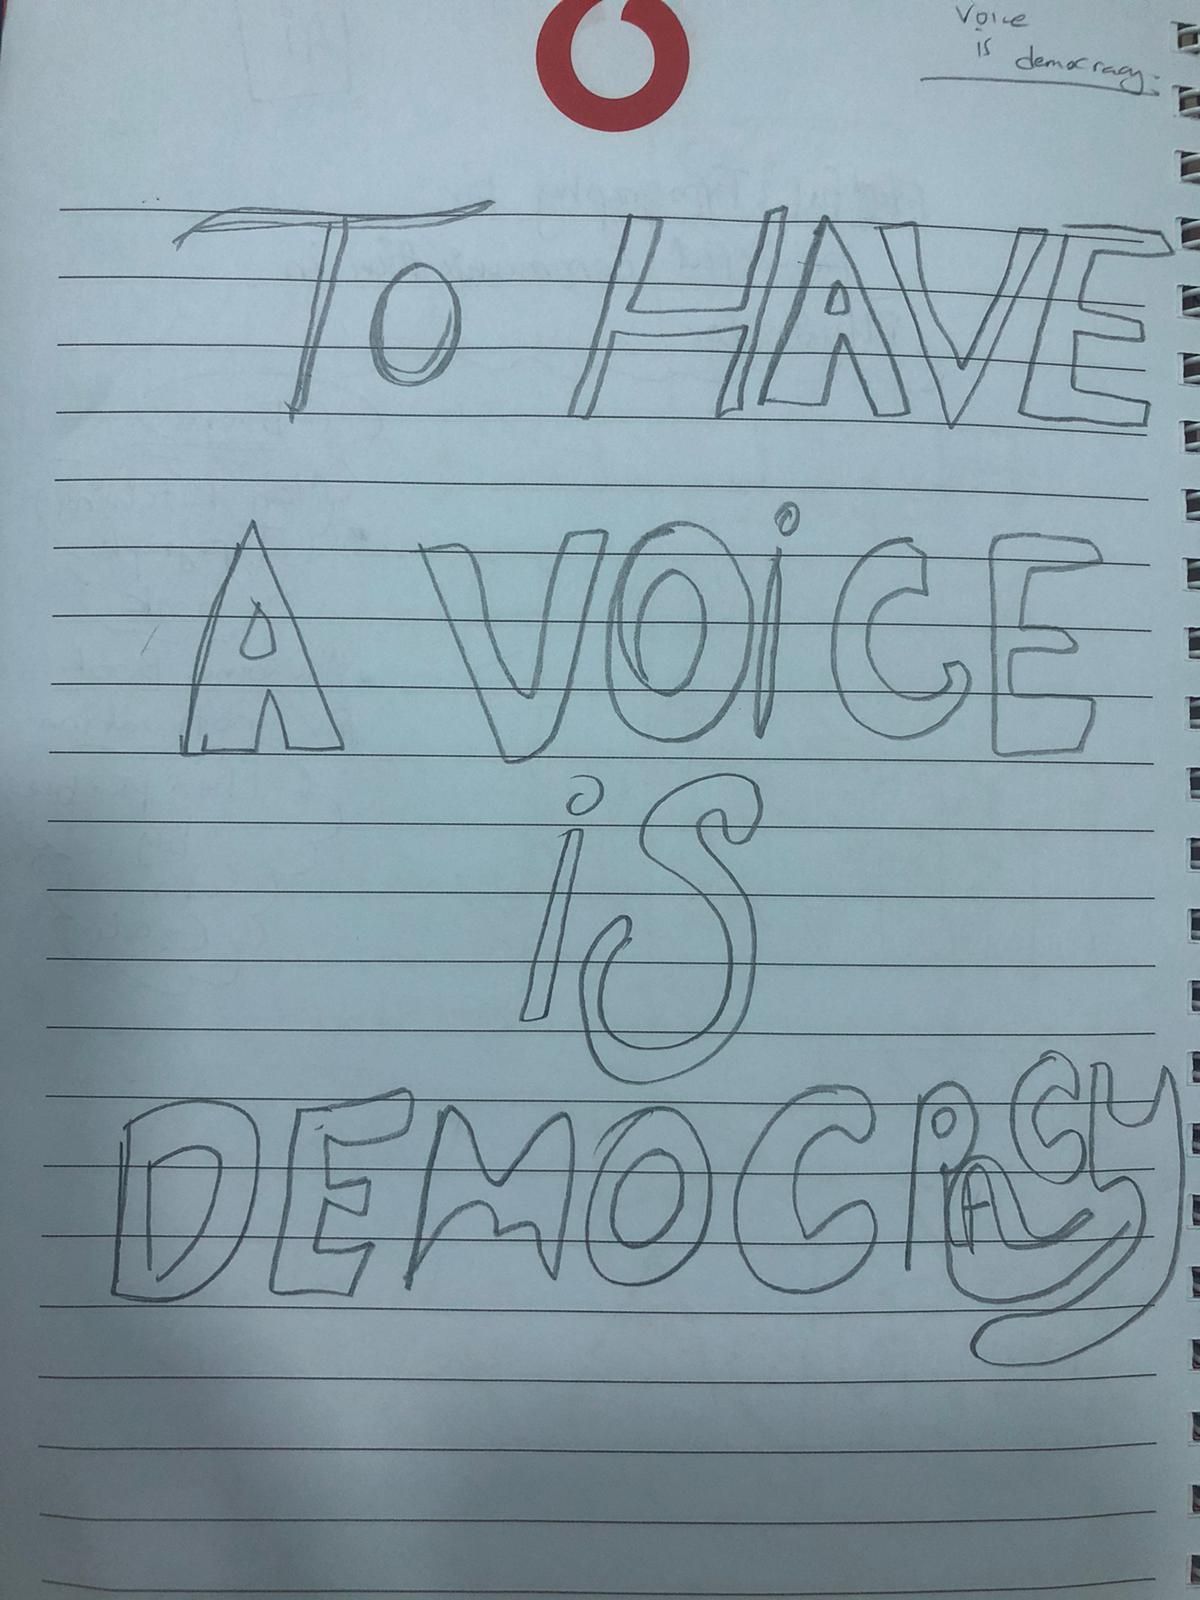 Voice
is
democracy.
TO HAVE
A VOiCE
iS
DEMOCRACY